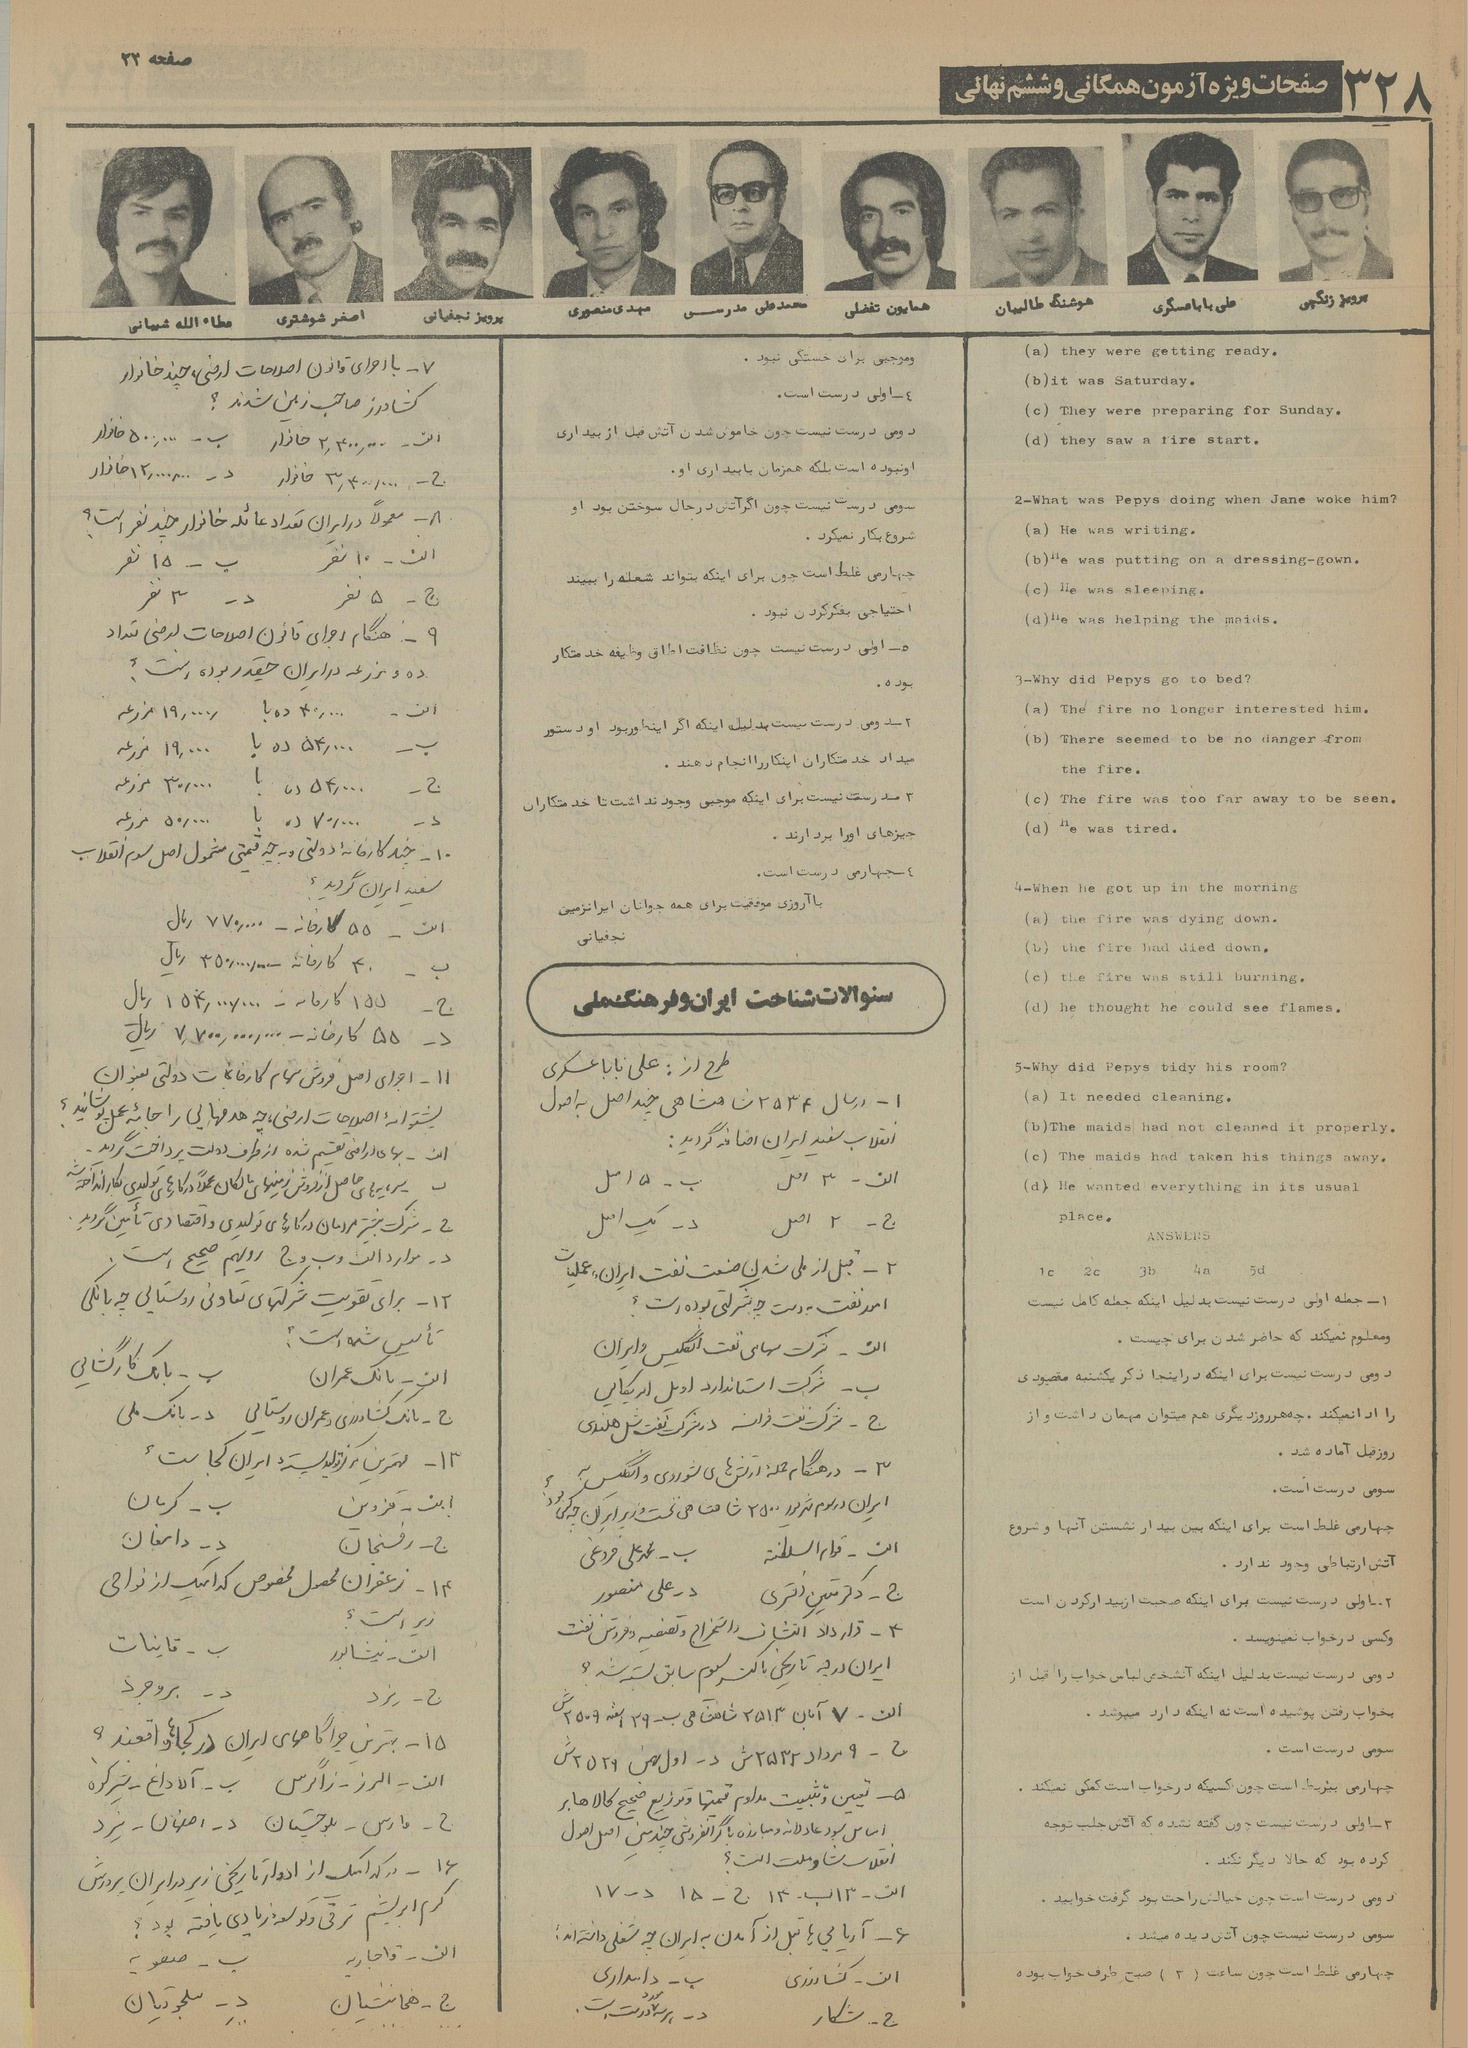 صفحه ۲۲
۳۲۸
صفحات ویژه آزمون همگانی وششم نهائی
پرویز زنگچی
علی باباعسگری
هوشنگ طالبیان
همایون تفضلی
محمدعلی مدرسی
مهدی منصوری
پرویز نجفیانی
اصغر شوشتری
عطاء الله شیبانی
(a) they were getting ready.
(b)it was Saturday.
(c) They were preparing for Sunday.
(d) they saw a fire start.
2-What was Pepys doing when Jane woke him?
(a) He was writing.
(b)He was putting on a dressing-gown.
(c) He was sleeping.
(d)He was helping the maids.
3-Why did Pepys go to bed?
(a) The fire no longer interested him.
(b) There seemed to be no danger from
the fire.
(c) The fire was too far away to be seen.
(d) He was tired.
4-When he got up in the morning
(a) the fire was dying down.
(b) the fire had died down.
(c) the fire was still burning.
(d) he thought he could see flames.
5-Why did Pepys tidy his room?
(a) It needed cleaning.
(b)The maids had not cleaned it properly.
(c) The maids had taken his things away.
(d) He wanted everything in its usual
place.
ANSWERS
1c 2c 3b 4a 5d
۱ــ جمله اولی درست نیست بدلیل اینکه جمله کامل نیست
ومعلوم نمیکند که حاضر شدن برای چیست .
دومی درست نیست برای اینکه دراینجا ذکر یکشنبه مقصودی
را ادانمیکند .چه‌هرروزدیگری هم میتوان مهمان داشت و از
روزقبل آماده شد .
سومی درست است.
چهارمی غلط است برای اینکه بین بیدار نشستن آنها و شروع
آتش ارتباطی وجود ندارد .
۲ــاولی درست نیست برای اینکه صحبت ازبیدارکردن است
وکسی درخواب نمینویسد .
دومی درست نیست بدلیل اینکه آنشخص لباس خواب را قبل از
بخواب رفتن پوشیده است نه اینکه دارد میپوشد .
سومی درست است .
چهارمی بیربط است چون کسیکه درخواب است کمکی نمیکند .
۳ــاولی درست نیست چون گفته نشده که آتش جلب توجه
کرده بود که حالا دیگر نکند .
دومی درست است چون خیالش راحت بود گرفت خوابید .
سومی درست نیست چون آتش دیده میشد .
چهارمی غلط است چون ساعت ( ۳ ) صبح طرف خواب بوده
وموجبی برای خستگی نبود .
٤ــاولی درست است.
دومی درست نیست چون خاموش شدن آتش قبل از بیداری
اونبوده است بلکه همزمان بابیداری او.
سومی درست نیست چون اگرآتش درحال سوختن بود او
شروع بکار نمیکرد .
چهارمی غلط است چون برای اینکه بتواند شعله را ببیند
احتیاجی بفکرکردن نبود .
٥ــ اولی درست نیست چون نظافت اطاق وظیفه خدمتکار
بوده.
۲ــدومی درست نیست بدلیل اینکه اگر اینطوربود او دستور
میداد خدمتکاران اینکارراانجام دهند .
۳ــدرست نیست برای اینکه موجبی وجود نداشت تا خدمتکاران
چیزهای اورا بردارند .
٤ــچهارمی درست است.
باآرزوی موفقیت برای همه جوانان ایرانزمین
نجفیانی
سئوالات شناخت ایران وفرهنگ ملی
طرح از : علی باباعسکری
۱ - درسال ۲۵۳۴ شاهنشاهی چند اصل به اصول
انقلاب سفید ایران اضافه گردید :
الف - ۳ اصل ب - ۵ اصل
ج - ۲ اصل د - یک اصل
۲ - قبل از ملی شدن صنعت نفت ایران، عملیات
امور نفت بدست چه شرکتی بوده است ؟
الف - شرکت سهامی نفت انگلیس و ایران
ب - شرکت استاندارد اویل امریکایی
ج - شرکت نفت فرانسه د - شرکت نفت شل هلندی
۳ - در هنگام حمله ارتش‌های شوروی و انگلیس به
ایران در سوم شهریور ۲۵۰۰ شاهنشاهی نخست وزیر ایران چه کسی بود؟
الف - قوام السلطنه ب - محمدعلی فروغی
ج - دکتر متین دفتری د - علی منصور
۴ - قرارداد اکتشاف و استخراج و تصفیه و فروش نفت
ایران در چه تاریخی با کنسرسیوم سابق بسته شد ؟
الف - ۷ آبان ۲۵۱۳ شاهنشاهی ب - ۲۹ اسفند ۲۵۰۹ ش
ج - ۹ مرداد ۲۵۳۲ ش د - اول بهمن ۲۵۲۱ ش
۵ - تعیین و تثبیت مداوم قیمتها و توزیع صحیح کالاها بر
اساس سود عادلانه و مبارزه با گرانفروشی چندمین اصل اصول
انقلاب شاه و ملت است ؟
الف - ۱۳ ب - ۱۴ ج - ۱۵ د - ۱۷
۶ - آریایی‌ها قبل از آمدن به ایران چه شغلی داشته‌اند ؟
الف - کشاورزی ب - دامداری
ج - شکار د - هر سه مورد درست است .
۷ - با اجرای قانون اصلاحات ارضی، چند خانوار
کشاورز صاحب زمین شدند ؟
الف - ۲٫۴۰۰٫۰۰۰ خانوار ب - ۵۰۰٫۰۰۰ خانوار
ج - ۳٫۴۰۰٫۰۰۰ خانوار د - ۱۲٫۰۰۰٫۰۰۰ خانوار
۸ - معمولاً در ایران تعداد عائله خانوار چند نفر است ؟
الف - ۱۰ نفر ب - ۱۵ نفر
ج - ۵ نفر د - ۳ نفر
۹ - هنگام اجرای قانون اصلاحات ارضی تعداد
ده و مزرعه در ایران چقدر بوده است ؟
الف - ۴۰٫۰۰۰ ده با ۱۹٫۰۰۰ مزرعه
ب - ۵۴٫۰۰۰ ده با ۱۹٫۰۰۰ مزرعه
ج - ۵۴٫۰۰۰ ده با ۳۰٫۰۰۰ مزرعه
د - ۷۰٫۰۰۰ ده با ۵۰٫۰۰۰ مزرعه
۱۰ - چند کارخانه دولتی و به چه قیمتی مشمول اصل سوم انقلاب
سفید ایران گردید ؟
الف - ۵۵ کارخانه - ۷۷۰٫۰۰۰ ریال
ب - ۴۰ کارخانه - ۳۵۰٫۰۰۰٫۰۰۰ ریال
ج - ۱۵۵ کارخانه - ۱۵۴٫۰۰۰٫۰۰۰ ریال
د - ۵۵ کارخانه - ۷٫۷۰۰٫۰۰۰٫۰۰۰ ریال
۱۱ - اجرای اصل فروش سهام کارخانجات دولتی بعنوان
پشتوانه اصلاحات ارضی، چه هدفهایی را جامه عمل پوشانید ؟
الف - بهای اراضی تقسیم شده از طرف دولت پرداخت گردید .
ب - سرمایه‌های حاصل از فروش زمینهای مالکان عملاً در کارهای تولیدی بکار انداخته شد
ج - شرکت بیشتر مردمان در کارهای تولیدی و اقتصادی تأمین گردید .
د - موارد الف و ب و ج رویهم صحیح است .
۱۲ - برای تقویت شرکتهای تعاونی روستایی چه بانکی
تأسیس شده است ؟
الف - بانک عمران ب - بانک کارگشایی
ج - بانک کشاورزی و عمران روستایی د - بانک ملی
۱۳ - مهمترین مرکز تولید پسته ایران کجاست ؟
الف - قزوین ب - کرمان
ج - رفسنجان د - دامغان
۱۴ - زعفران محصول مخصوص کدامیک از نواحی
زیر است ؟
الف - نیشابور ب - قاینات
ج - یزد د - بروجرد
۱۵ - بهترین چراگاههای ایران در کجاها واقعند ؟
الف - البرز - زاگرس ب - آلاداغ - شیرکوه
ج - فارس - بلوچستان د - اصفهان - یزد
۱۶ - در کدامیک از ادوار تاریخی زیر در ایران پرورش
کرم ابریشم ترقی و توسعه زیادی یافته بود ؟
الف - قاجاریه ب - صفویه
ج - هخامنشیان د - سلجوقیان